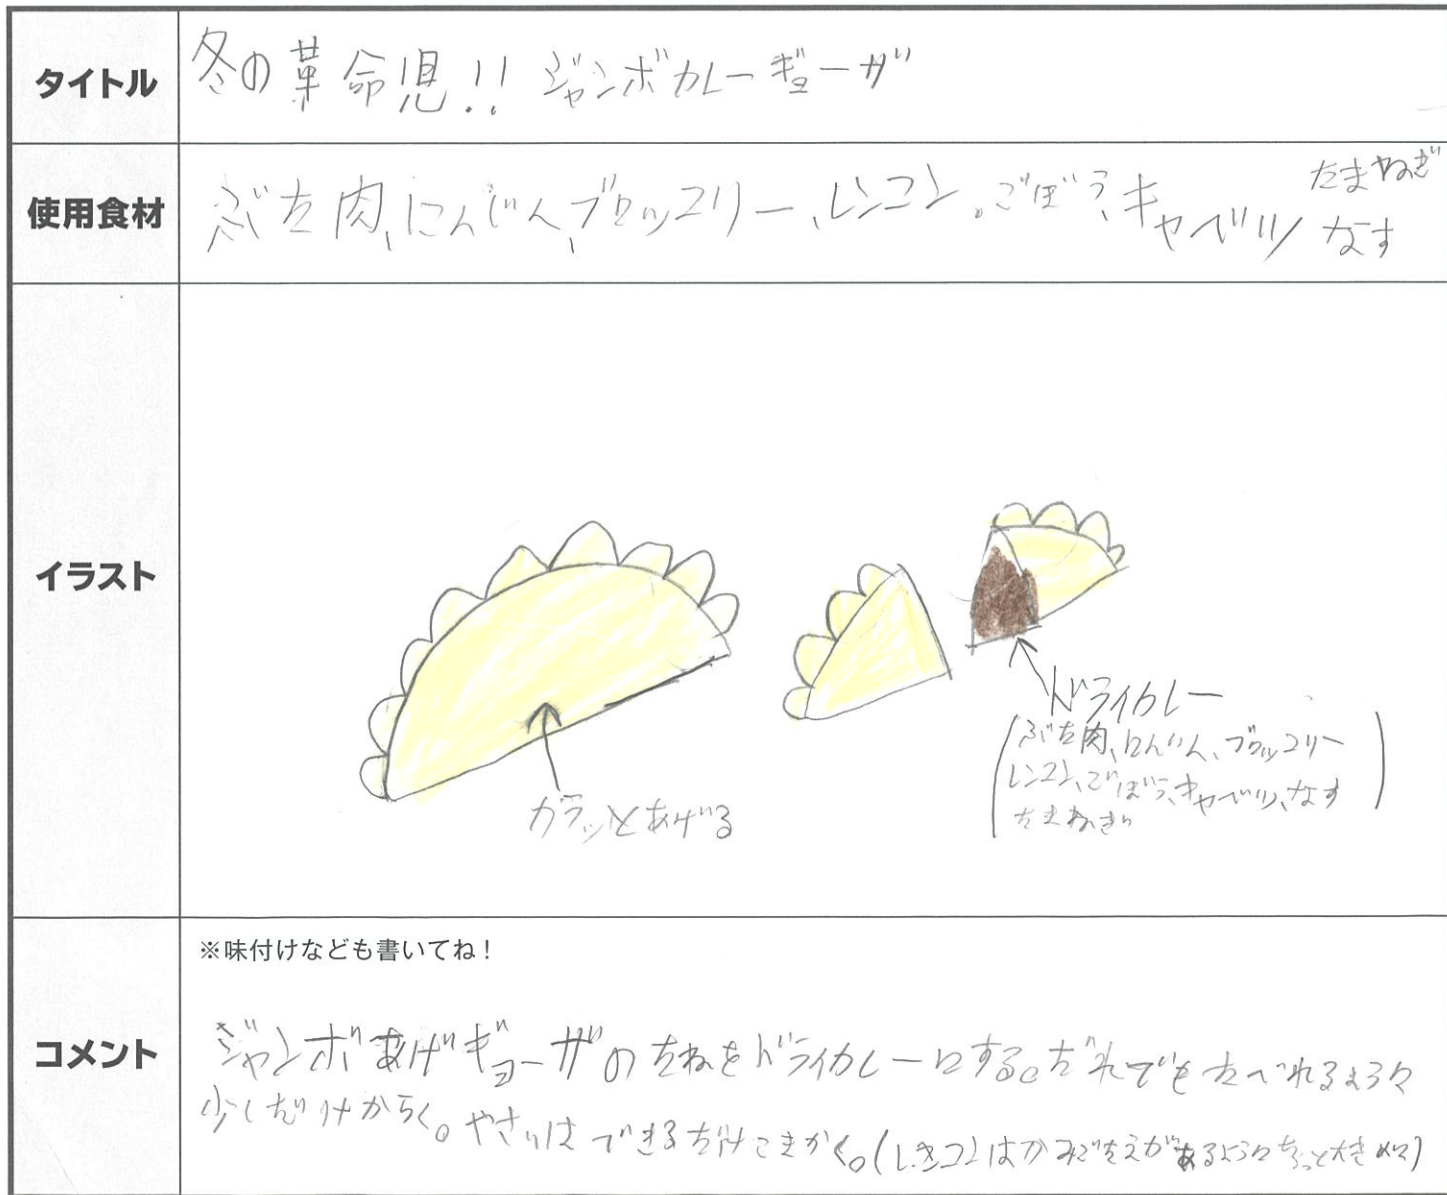 タイトル
冬の革命児!! ジャンボカレーギョーザ
使用食材
たまねぎ
ぶた肉、にんじん、ブロッコリー、レンコン。ごぼう、キャベツ なす
イラスト
カラッとあげる
ドライカレー
(ぶた肉、にんじん、ブロッコリー
レンコン、ごぼう、キャベツ、なす
たまねぎ)
コメント
※味付けなども書いてね!
ジャンボあげギョーザのたねをドライカレーにする。だれでもたべれるように
少しだけからく。やさいはできるだけこまかく。(レンコンはかみごたえがあるようにちょっと大きめに)